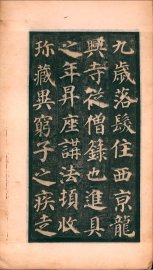 九歲落髮住西京龍
興寺從僧籙也進具
之年昇座講法頓收
珎藏異窮子之疾走